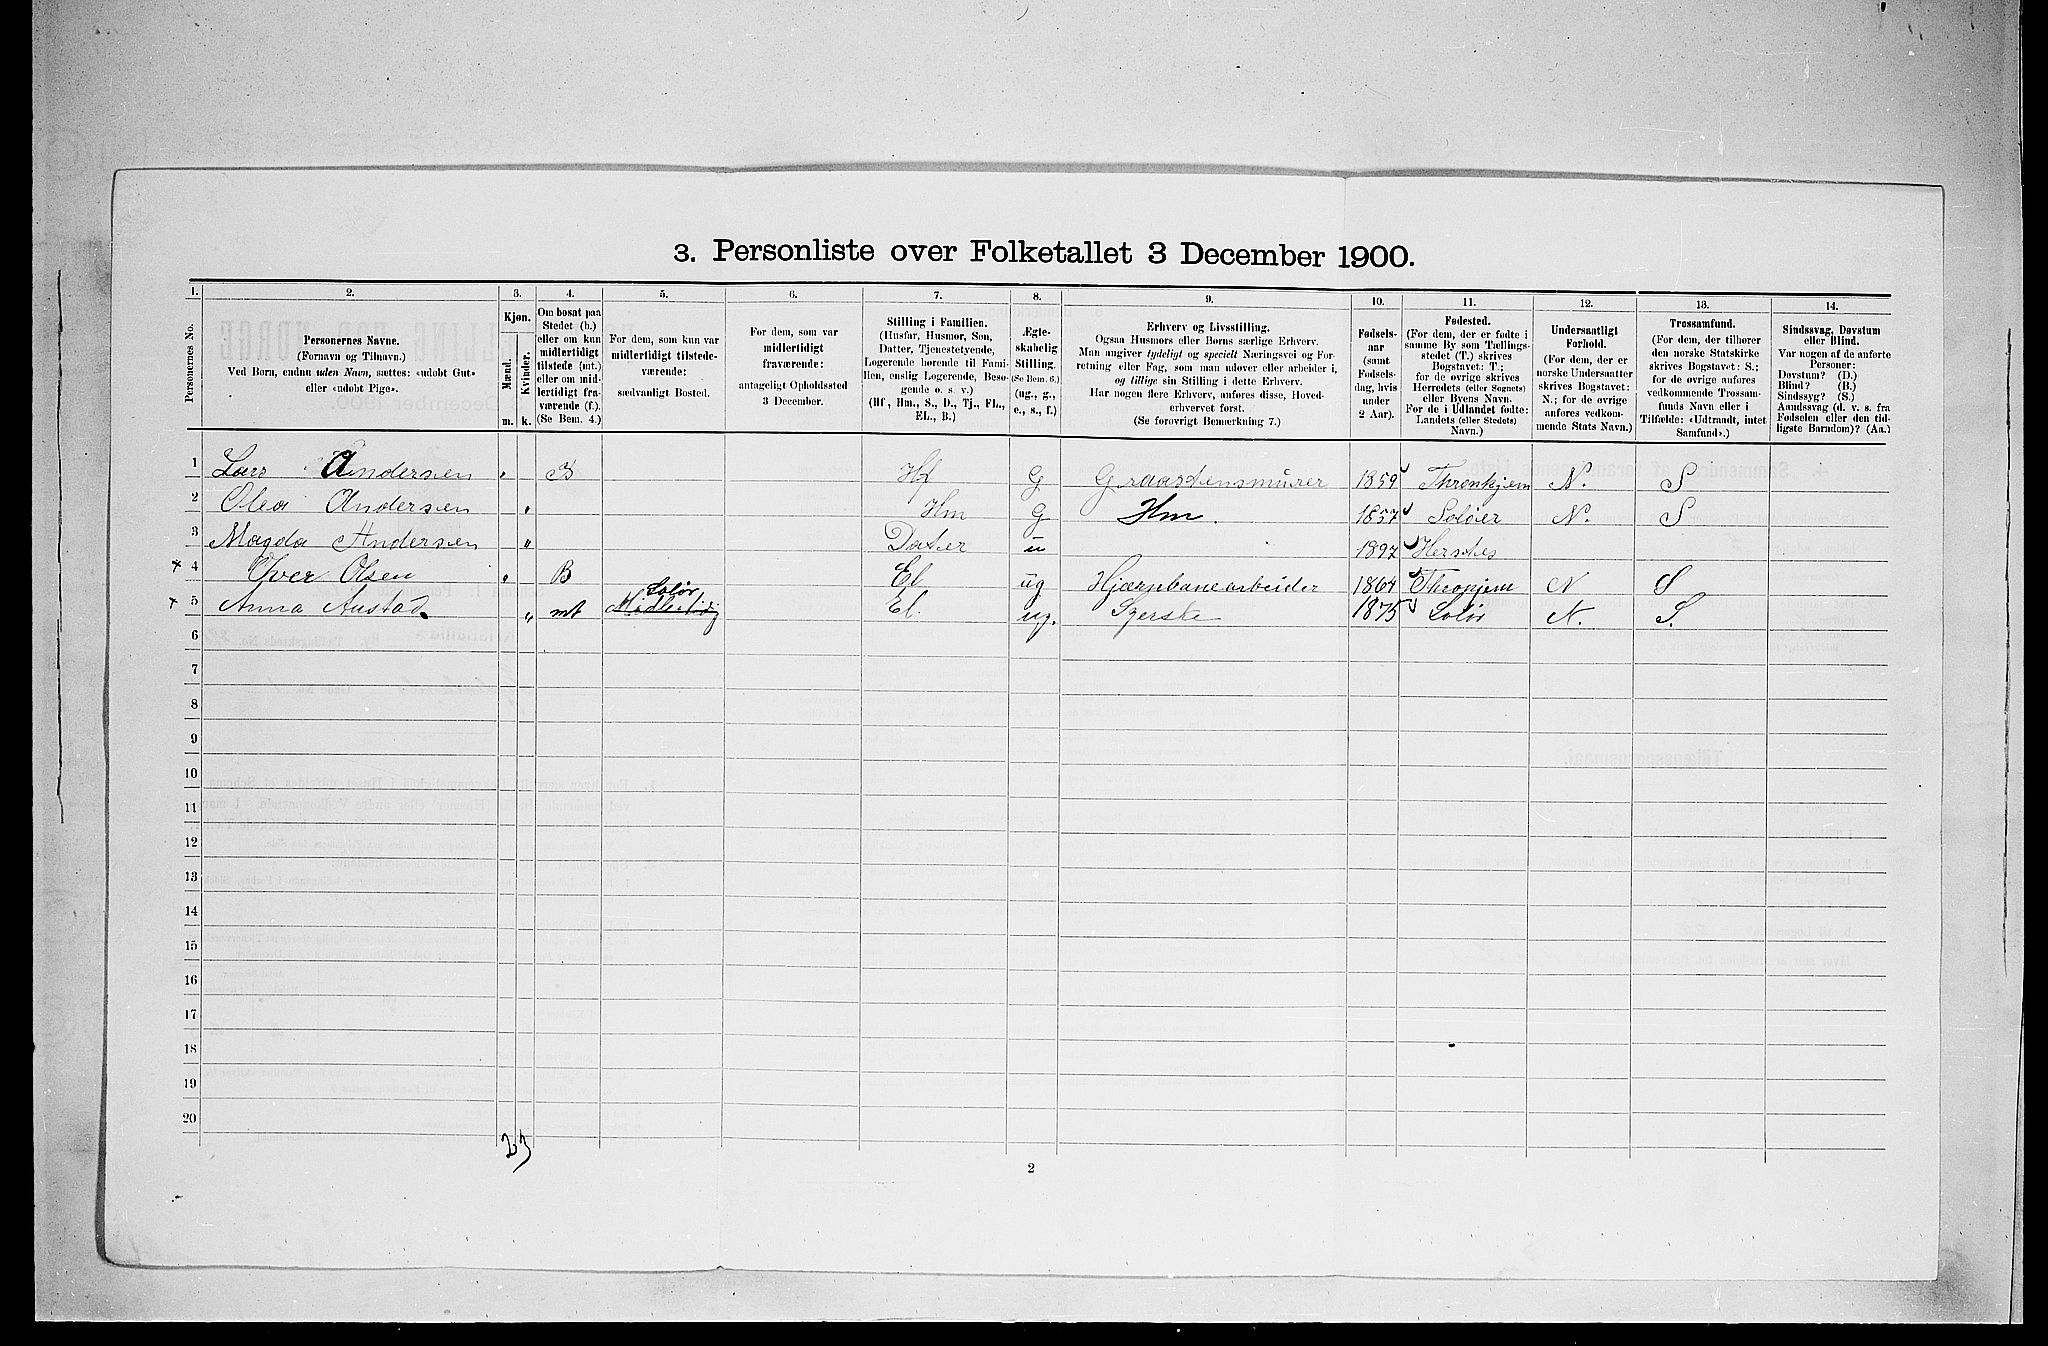 3. Personliste over Folketallet 3 December 1900.
1. 2. 3. 4. 5. 6. 7. 8. 9. 10. 11. 12. 13. 14.
Personernes No.
Personernes Navne.
(Fornavn og Tilnavn.)
Ved Børn, endnu uden Navn, sættes: «udøbt Gut»
eller «udøbt Pige».
Kjøn.
Mænd.
Kvinder.
m. k.
Om bosat paa
Stedet (b.)
eller om kun
midlertidigt
tilstede (mt.)
eller om mid-
lertidigt fra-
værende (f.).
(Se Bem. 4.)
For dem, som kun var
midlertidigt tilstede-
værende:
sædvanligt Bosted.
For dem, som var
midlertidigt
fraværende:
antageligt Opholdssted
3 December.
Stilling i Familien.
(Husfar, Husmor, Søn,
Datter, Tjenestetyende,
Logerende hørende til Fami-
lien, enslig Logerende, Besø-
gende o. s. v.)
(Hf., Hm., S., D., Tj., FL.,
EL., B.)
Ægte-
skabelig
Stilling.
(Se Bem. 6.)
(ug., g.,
e., s., f.)
Erhverv og Livsstilling.
Ogsaa Husmors eller Børns særlige Erhverv.
Man angiver tydeligt og specielt Næringsvei og For-
retning eller Fag, som man udøver eller arbeider i,
og tillige sin Stilling i dette Erhverv.
Har nogen flere Erhverv, anføres disse, Hoved-
erhvervet først.
(Se forøvrigt Bemærkning 7.)
Fødsels-
aar
(samt
Fødsels-
dag, hvis
under
2 Aar).
Fødested.
(For dem, der er fødte i
samme By som Tællings-
stedet (T.) skrives
Bogstavet: T.;
for de øvrige skrives
Herredets (eller Sognets)
eller Byens Navn.
For de i Udlandet fødte:
Landets (eller Stedets)
Navn.)
Undersaatligt
Forhold.
(For dem, der er
norske Undersaatter
skrives Bogstavet:
N.; for de øvrige
anføres vedkom-
mende Stats Navn.)
Trossamfund.
(For dem, der tilhører
den norske Statskirke
skrives Bogstavet: S.;
for de øvrige anføres
vedkommende Trossam-
funds Navn eller i
Tilfælde: «Udtraadt, intet
Samfund».)
Sindssvag, Døvstum
eller Blind.
Var nogen af de anførte
Personer:
Døvstum? (D.)
Blind? (B.)
Sindssyg? (S.)
Aandssvag (d. v. s. fra
Fødselen eller den tid-
ligste Barndom)? (Aa.)
1 Lars Andersen B Hf G Graastensmürer 1859 Thronhjem N. S
2 Olea Andersen Hm G Hm. 1857 Soløer N. S
3 Magda Andersen Dater u 1897 Herstes
x 4 Iver Olsen B El ug Hjærnbanearbeider 1864 Thronjem N S
Solør
x 5 Anna Austad mt Midlertidig El. ug. 1875 Solør N. S.
6
7
8
9
10
11
12
13
14
15
16
17
18
19
20
2 3
2